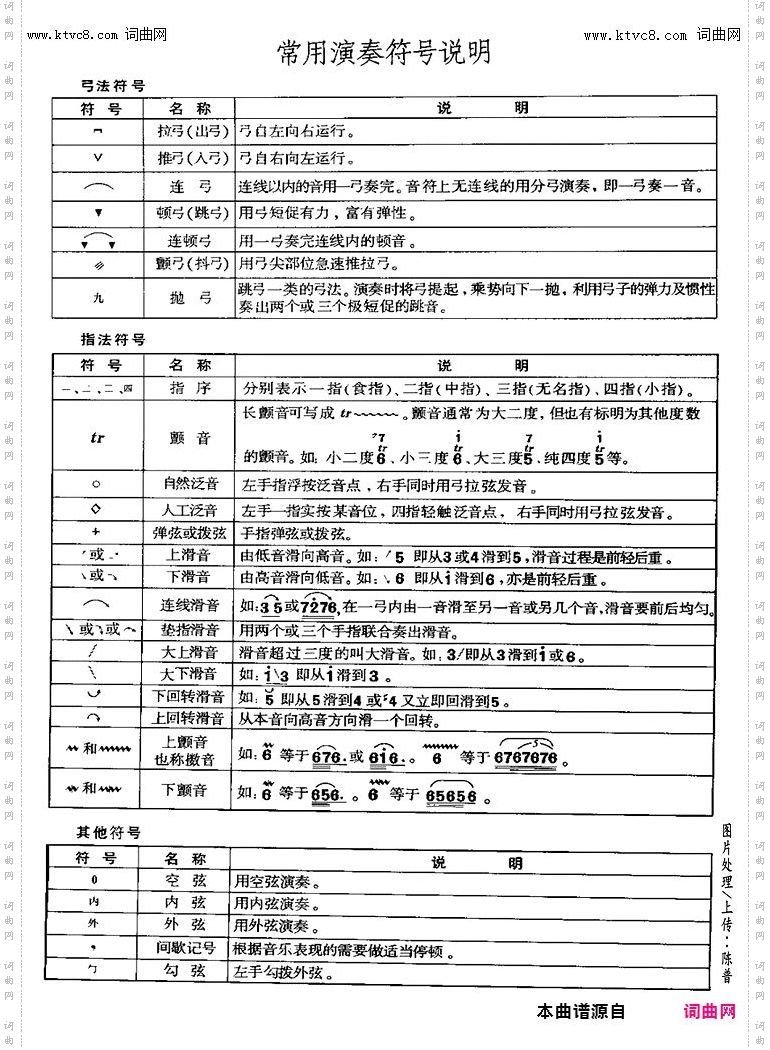 www.ktvc8.com 词曲网
www.ktvc8.com 词曲网
常用演奏符号说明
弓法符号
符 号 名 称 说 明
拉弓(出弓) 弓自左向右运行。
∨ 推弓(入弓) 弓自右向左运行。
连 弓 连线以内的音用一弓奏完。音符上无连线的用分弓演奏，即一弓奏一音。
▼ 顿弓(跳弓) 用弓短促有力，富有弹性。
连顿弓 用一弓奏完连线内的顿音。
颤弓(抖弓) 用弓尖部位急速推拉弓。
九 抛 弓 跳弓一类的弓法。演奏时将弓提起，乘势向下一抛，利用弓子的弹力及惯性
奏出两个或三个极短促的跳音。
指法符号
符 号 名 称 说 明
指 序 分别表示一指(食指)、二指(中指)、三指(无名指)、四指(小指)。
tr 颤 音 长颤音可写成 tr~~~~~~。颤音通常为大二度，但也有标明为其他度数
的颤音。如：小二度6、小三度6、大三度5、纯四度5等。
○ 自然泛音 左手指浮按泛音点，右手同时用弓拉弦发音。
◇ 人工泛音 左手一指实按某音位，四指轻触泛音点， 右手同时用弓拉弦发音。
+ 弹弦或拨弦 手指弹弦或拨弦。
或 上滑音 由低音滑向高音。如：5 即从3或4滑到5，滑音过程是前轻后重。
或 下滑音 由高音滑向低音。如：6 即从i滑到6，亦是前轻后重。
连线滑音 如：3 5或7276，在一弓内由一音滑至另一音或另几个音，滑音要前后均匀。
或 或 垫指滑音 用两个或三个手指联合奏出滑音。
大上滑音 滑音超过三度的叫大滑音。如：3/即从3滑到i或6。
大下滑音 如：i\3 即从i滑到3。
下回转滑音 如：5 即从5滑到4或#4又立即回滑到5。
上回转滑音 从本音向高音方向滑一个回转。
和 上颤音
也称揿音 如：6 等于 676· 或 6i6·。 6 等于 6767676。
和 下颤音 如：6 等于 656·。 6 等于 65656。
其他符号
符 号 名 称 说 明
0 空 弦 用空弦演奏。
内 内 弦 用内弦演奏。
外 外 弦 用外弦演奏。
, 间歇记号 根据音乐表现的需要做适当停顿。
勹 勾 弦 左手勾拨外弦。
图片处理/上传：陈普
本曲谱源自 词曲网